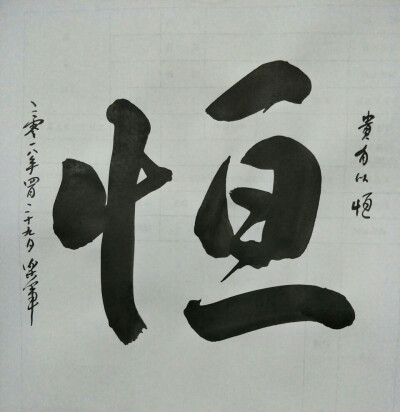 貴有以恒
恒
二零一八年四月二十九日